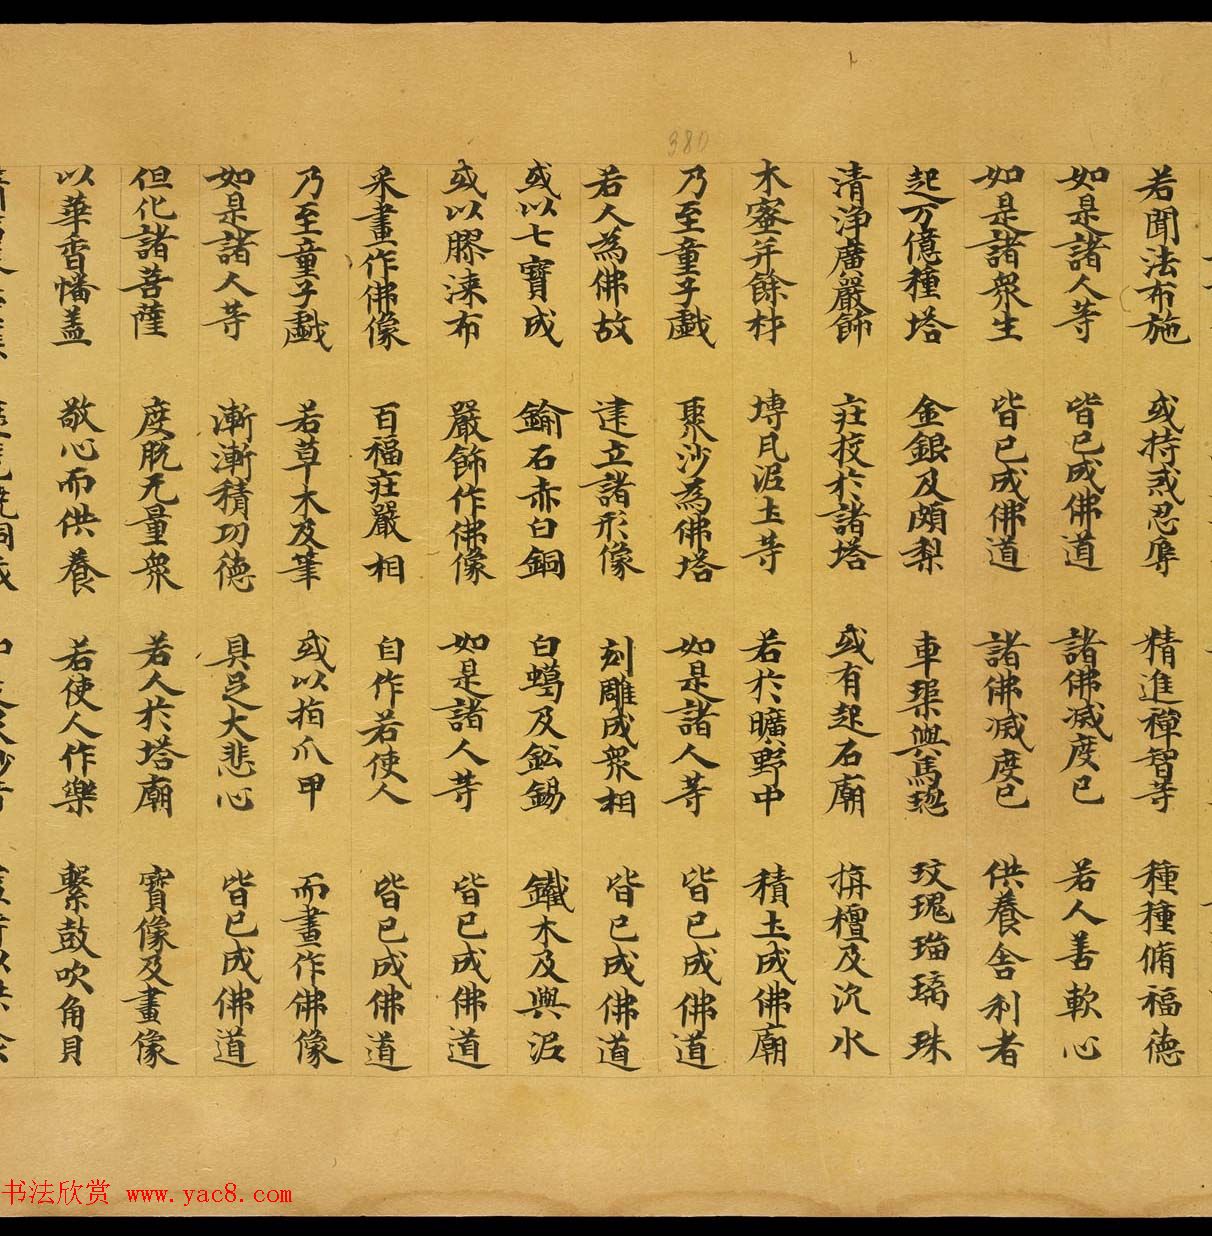 若聞法布施 或持戒忍辱 精進禪智等 種種脩福德
如是諸人等 皆已成佛道 諸佛滅度已 若人善軟心
如是諸衆生 皆已成佛道 諸佛滅度已 供養舍利者
起万億種塔 金銀及頗梨 車𤦲與馬瑙 玫瑰瑠璃珠
清淨廣嚴飾 莊挍於諸塔 或有起石廟 栴檀及沉水
木櫁并餘材 塼瓦泥土等 若於曠野中 積土成佛廟
乃至童子戲 聚沙為佛塔 如是諸人等 皆已成佛道
若人為佛故 建立諸形像 刻雕成衆相 皆已成佛道
或以七寶成 鍮石赤白銅 白鑞及鈆錫 鐵木及與泥
或以膠漆布 嚴飾作佛像 如是諸人等 皆已成佛道
采畫作佛像 百福莊嚴相 自作若使人 皆已成佛道
乃至童子戲 若草木及筆 或以指爪甲 而畫作佛像
如是諸人等 漸漸積功德 具足大悲心 皆已成佛道
但化諸菩薩 度脫无量衆 若人於塔廟 寶像及畫像
以華香幡蓋 敬心而供養 若使人作樂 繫鼓吹角貝
380
书法欣赏 www.yac8.com